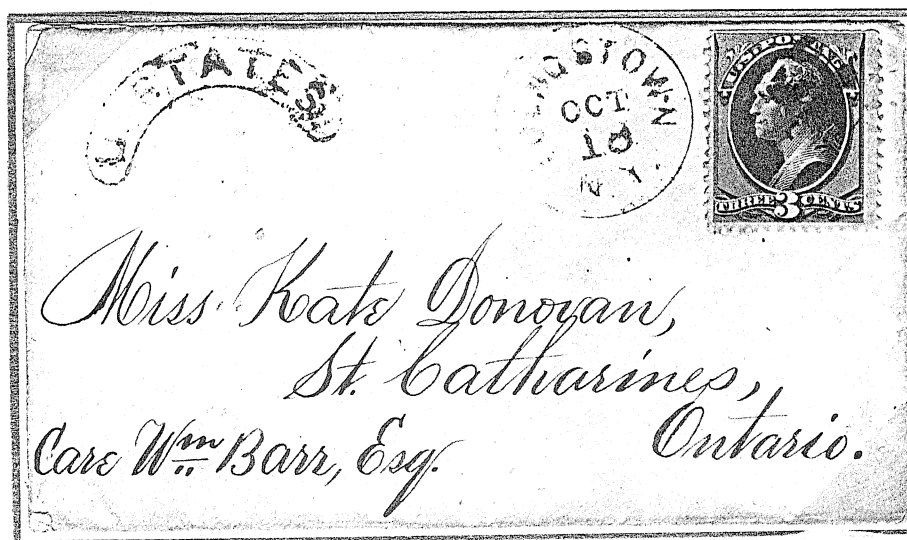 U. STATES
YOUNGSTOWN
OCT
18
N.Y.
U.S. POSTAGE
THREE 3 CENTS
Miss Kate Donovan,
St. Catharines,
Ontario.
Care Wm Barr, Esq.